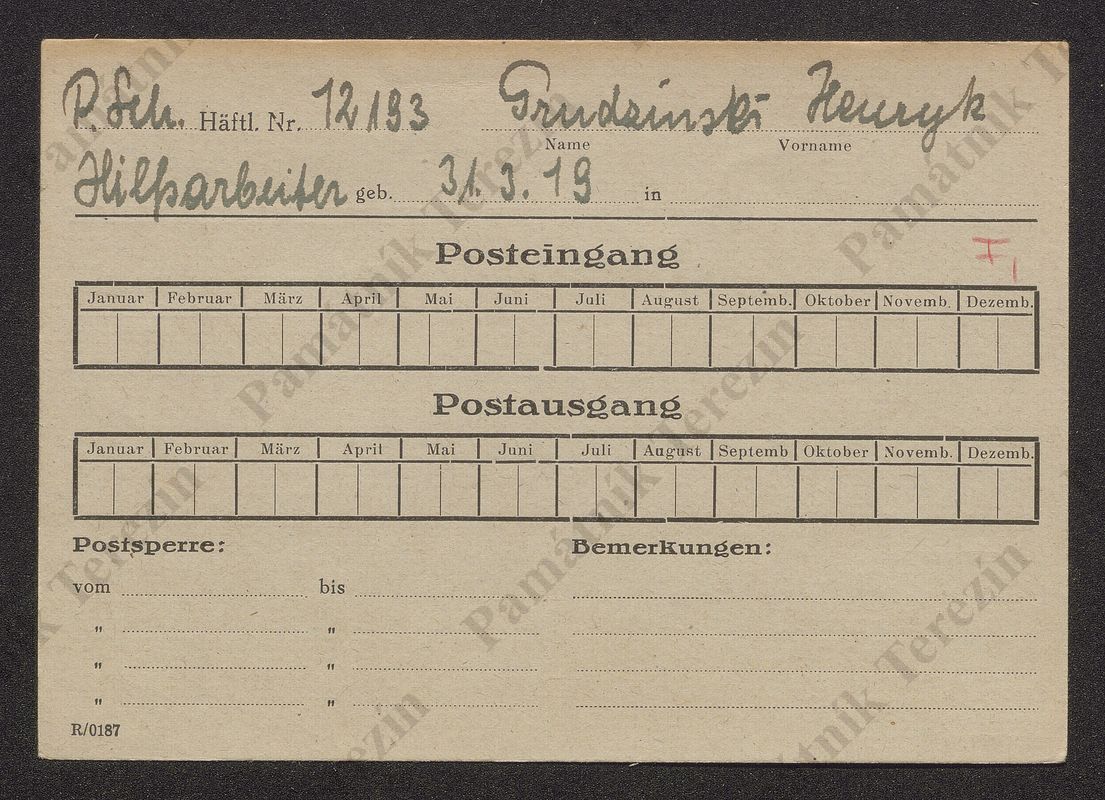 P. Sch. Häftl. Nr. 12193 Grudzinski Henryk
Name Vorname
Hilfsarbeiter geb. 31. 3. 19 in
Posteingang
Januar Februar März April Mai Juni Juli August Septemb. Oktober Novemb. Dezemb.
Postausgang
Januar Februar März April Mai Juni Juli August Septemb Oktober Novemb. Dezemb.
Postsperre: Bemerkungen:
vom bis
" "
" "
" "
R/0187
Památník Terezín